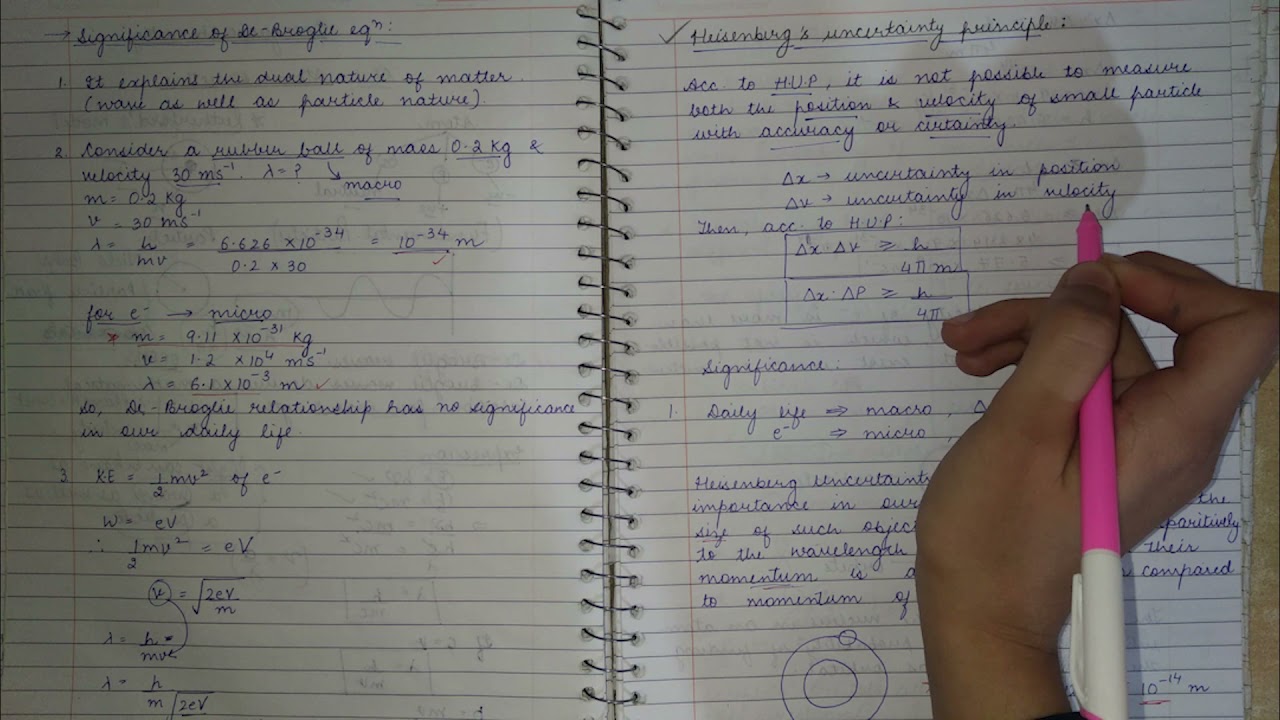 → Significance of De-Broglie eqⁿ:
1. It explains the dual nature of matter
(wave as well as particle nature).
2. Consider a rubber ball of mass 0.2 kg &
velocity 30 ms⁻¹. λ = ?
macro
m = 0.2 kg
v = 30 ms⁻¹
λ = h/mv = 6.626 × 10⁻³⁴/0.2 × 30 = 10⁻³⁴ m
for e⁻ → micro
* m = 9.11 × 10⁻³¹ kg
v = 1.2 × 10⁴ ms⁻¹
λ = 6.1 × 10⁻³ m
So, De-Broglie relationship has no significance
in our daily life.
3. K.E = 1/2 mv² of e⁻
W = eV
∴ 1/2 mv² = eV
v = √2eV/m
λ = h/mv
λ = h/m√2eV
✓ Heisenberg's uncertainty principle:
Acc. to H.U.P, it is not possible to measure
both the position & velocity of small particle
with accuracy or certainty.
Δx → uncertainty in position
Δv → uncertainty in velocity
Then, acc. to H.U.P:
Δx · Δv ≥ h/4πm
Δx · ΔP ≥ h/4π
Significance:
1. Daily life ⇒ macro, Δ
e⁻ ⇒ micro,
Heisenberg Uncertainty
importance in our the
size of such object paritively
to the wavelength their
momentum is compared
to momentum of
10⁻¹⁴ m